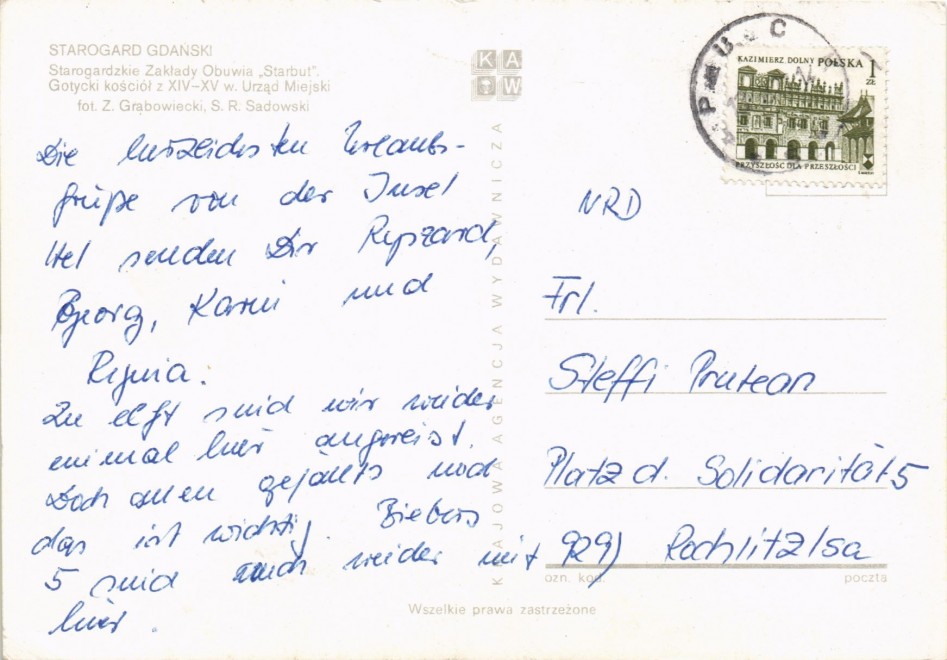 STAROGARD GDAŃSKI
Starogardzkie Zakłady Obuwia „Starbut".
Gotycki kościół z XIV–XV w. Urząd Miejski
fot. Z. Grabowiecki, S. R. Sadowski
KAW
KAZIMIERZ DOLNY POLSKA 1 ZŁ
PRZYSZŁOŚĆ DLA PRZESZŁOŚCI
Die herzlichsten Urlaubs-
grüße von der Insel
Hel senden Dir Ryszard,
Georg, Karin und
Regina.
Zu elft sind wir wieder
einmal hier angereist.
Doch allen gefällts und
das ist wichtig. Biebers
5 sind auch wieder mit
hier.
KRAJOWA AGENCJA WYDAWNICZA
NRD
Frl.
Steffi
Platz d. Solidarität 5
9291 Rochlitz/Sa
ozn. kod. poczta
Wszelkie prawa zastrzeżone